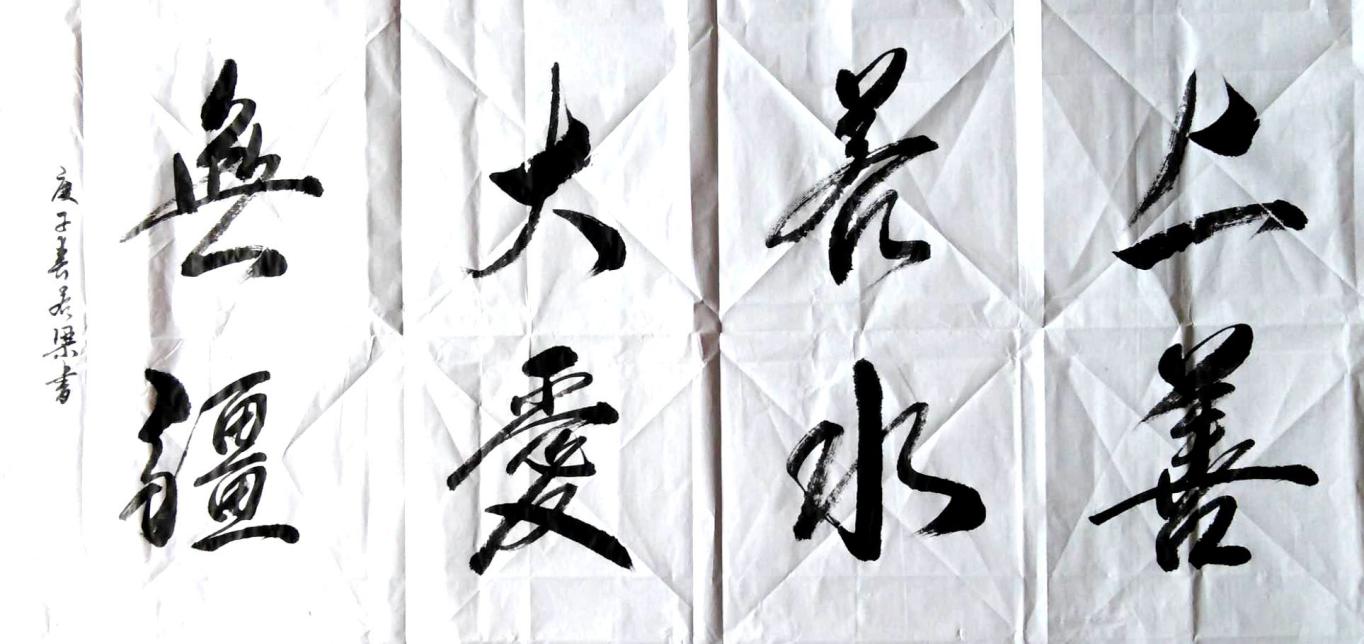 上善
若水
大愛
無疆
庚子春君梁書